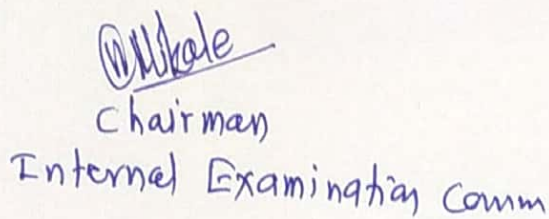 Chairman
Internal Examination Comm